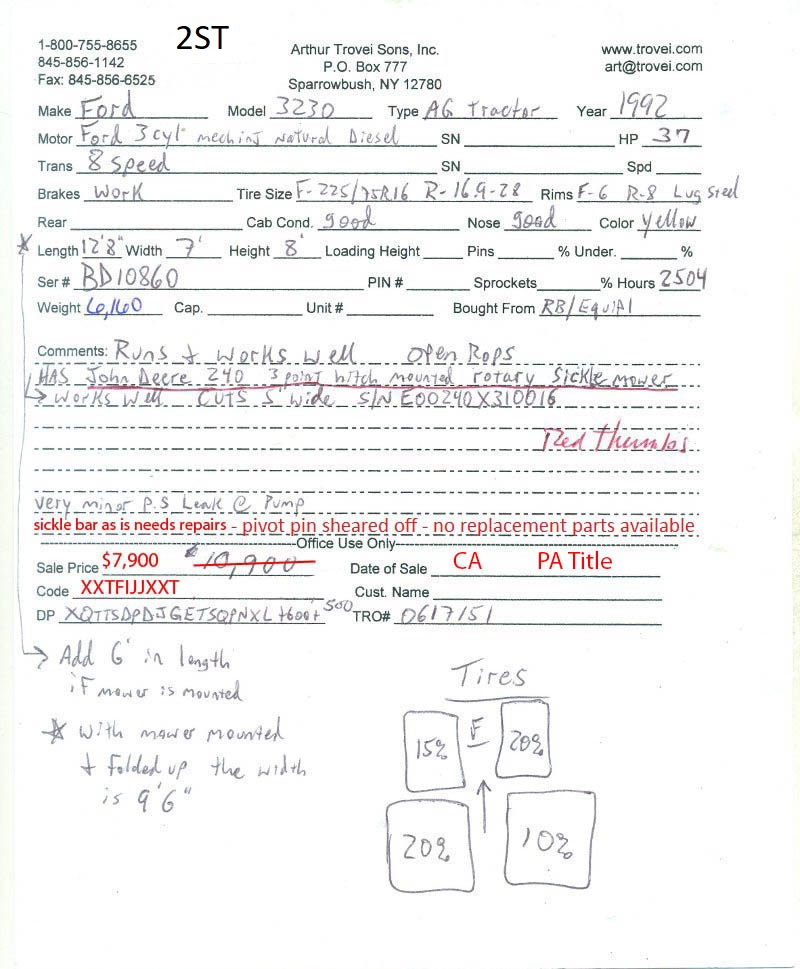 1-800-755-8655 2ST Arthur Trovei Sons, Inc. www.trovei.com
845-856-1142 P.O. Box 777 art@trovei.com
Fax: 845-856-6525 Sparrowbush, NY 12780
Make Ford Model 3230 Type AG Tractor Year 1992
Motor Ford 3 cyl Natural Diesel SN HP 37
Trans 8 Speed SN Spd
Brakes Work Tire Size F-225/75R16 R-16.9-28 Rims F-6 R-8 Lug Steel
Rear Cab Cond. good Nose good Color Yellow
* Length 12'8" Width 7' Height 8' Loading Height Pins % Under. %
Ser # BD10860 PIN # Sprockets % Hours 2504
Weight 6,160 Cap. Unit # Bought From RB/EquiPl
Comments: Runs + works well Open Rops
HAS John Deere 240 3 point hitch mounted rotary Sickle mower
→ Works Well CUTS 5' wide S/N E00240X310016
Red Thumbs
very minor P.S Leak @ Pump
sickle bar as is needs repairs - pivot pin sheared off - no replacement parts available
Office Use Only
Sale Price $7,900 $10,900 Date of Sale CA PA Title
Code XXTFIJJXXT Cust. Name
DP XQTTSDPDJGETSQPNXL +600+ 500 TRO# 0617151
→ Add 6' in length
if mower is mounted
* With mower mounted
+ folded up the width
is 9'6"
Tires
15% F 20%
20% 10%